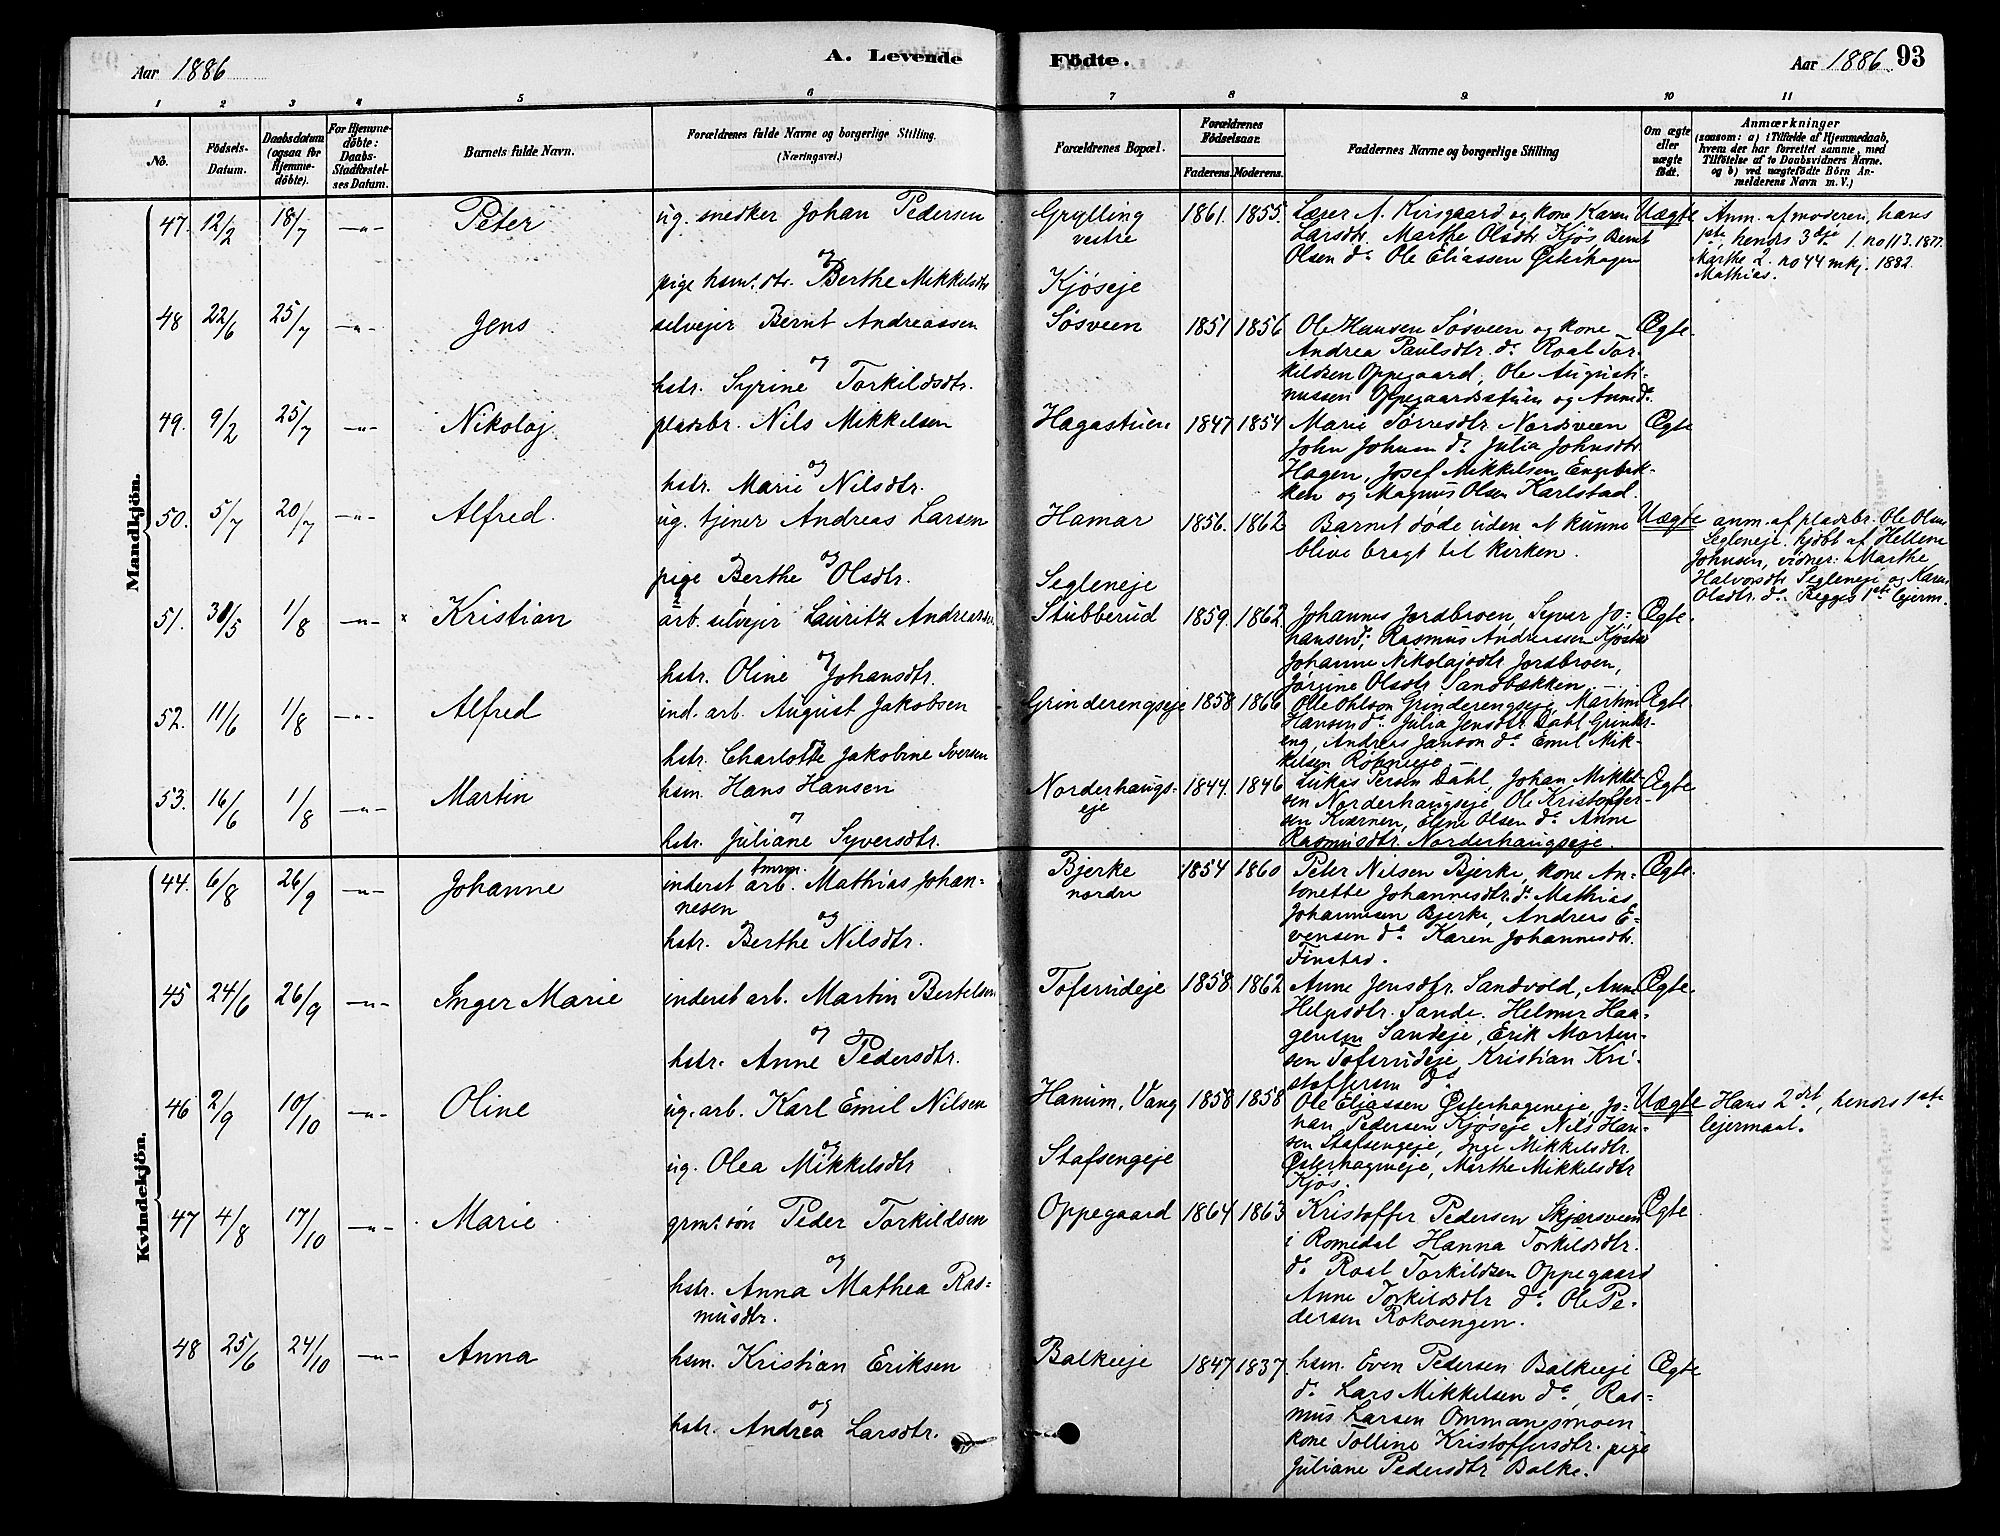 Aar 1886
A. Levende
Födte.
Aar 1886.
93
1 2 3 4 5 6 7 8 9 10 11
No.
Födsels-
Datum.
Daabsdatum
(ogsaa for
Hjemme-
döbte).
For Hjemme-
döbte:
Daabs-
Stadfæstel-
ses Datum.
Barnets fulde Navn.
Forældrenes fulde Navne og borgerlige Stilling.
(Næringsvei.)
Forældrenes Bopæl.
Forældrenes
Födselsaar.
Faderens. Moderens.
Faddernes Navne og borgerlige Stilling
Om ægte
eller
uægte
födt.
Anmærkninger
(saasom: a) i Tilfælde af Hjemmedaab,
hvem der har forrettet samme, med
Tilföielse af to Daabsvidners Navne.
og b) ved uægtefödte Börn An-
melderens Navn m. V.)
Mandkjön.
47. 12/2 18/7 —"— Peter
ug. snedker Johan Pedersen
og
pige hsm.dtr. Berthe Mikkelsdtr
Grylling
vestre
Kjøseje
1861. 1855.
Lærer A. Kirsgaard og kone Karen
Larsdtr. Marthe Olsdtr. Kjøs, Bernt
Olsen do Ole Eliassen Østerhagen
Uægte
Anm. af moderen, hans
1ste, hendes 3dje 1. no 113. 1877.
Marthe 2. no 44 mkj. 1882.
Mathias.
48 22/6 25/7 —"— Jens
selvejer Bernt Andreassen
og
hstr. Syrine Torkildsdtr.
Søsveen
1851 1856
Ole Hansen Søsveen og kone
Andrea Paulsdtr. do Roal Tor-
kildsen Oppegaard, Ole Augusti-
nussen Oppegaardsstuen og Anne do
Ægte
49. 9/2 25/7 —"— Nikolaj
pladsbr. Nils Mikkelsen
og
hstr. Marie Nilsdtr.
Hagastuen
1847 1854
Marie Torresdtr Nordsveen
John Johnsen do Julia Johnsdtr
Hagen, Josef Mikkelsen Engebak-
ken og Magnus Olsen Karlstad.
Ægte
50. 5/7 20/7 —"— Alfred.
ug. tjener Andreas Larsen
og
pige Berthe Olsdtr.
Hamar
Segleneje
1856. 1862
Barnet døde uden at kunne
blive bragt til kirken.
Uægte
anm. af pladsbr. Ole Olsen
Segleneje. hjdbt af Hellene
Johnsen, vidner. Marthe
Halvorsdtr Segleneje og Karen
Olsdtr. do Begges 1ste lejerm.
51. 31/5 1/8 —"— Kristian
arb. selvejer Lauritz Andreassen
og
hstr. Oline Johansdtr.
Stubberud
1859. 1862.
Johannes Jordbroen, Syver Jo-
hansen do, Rasmus Andreassen
Johanne Nikolajsdtr Jordbroen,
Jørgine Olsdtr. Sandbækken
Ægte.
52. 11/6 1/8 —"— Alfred
ind. arb. August Jakobsen
og
hstr. Charlotte Jakobine Iversen
Grinderengseje
1858 1866
Ole Ohlson Grinderengseje, Martin
Hansen do Julia Jensdtr. Dahl Grinder-
eng, Andreas Janson do Emil Mik-
kelsen
Ægte.
53. 16/6 1/8 —"— Martin
hsm. Hans Hansen
og
hstr. Juliane Syversdtr.
Norderhaugs-
eje
1844. 1846
Lukas Persen Dahl, Johan Mikkel-
sen Norderhaugseje, Ole Kristoffer-
sen Kværnen, Eline Olsen do Anne
Rasmusdtr. Norderhaugseje.
Ægte.
Kvindekjön.
44. 6/8 26/9 —"— Johanne
inderst tmrm. arb. Mathias Johan-
nesen
og
hstr. Berthe Nilsdtr.
Bjerke
nordre
1854 1860
Peter Nilsen Bjerke, kone An-
tonette Johannesdtr. do Mathias
Johannesen Bjerke, Andreas E-
vensen do Karen Johannesdtr.
Finstad.
Ægte.
45 24/6 26/9 —"— Inger Marie
inderst arb. Martin Bertelsen
og
hstr. Anne Pedersdtr.
Tofsrudeje
1858. 1862.
Anne Jensdtr. Sandvold, Anne
Helgesdtr. Sande. Helmer Haa-
gensen Sandeje, Erik Morten-
sen Tofsrudeje, Kristian Kri-
stoffersen do
Ægte.
46 2/9 10/10 —"— Oline
ug. arb. Karl Emil Nilsen
og
ug. Olea Mikkelsdtr
Hanum, Vang
Stafsengeje
1858 1858
Ole Eliassen Østerhageneje, Jo-
han Pedersen Kjøseje Nils Han-
sen Stafsengeje, Inge Mikkelsdtr.
Østerhageneje, Marthe Mikkelsdtr
Kjøs.
Uægte
Hans 2det, hendes 1ste
lejermaal.
47 4/8 17/10 —"— Marie
grm. søn Peder Torkildsen
og
hstr. Anna Mathea Ras-
musdtr.
Oppegaard
1864 1863
Kristoffer Pedersen Skjærsveen
i Romedal Hanna Torkildsdtr.
do Roal Torkildsen Oppegaard
Anne Torkildsdtr do Ole Pe-
dersen Rokoengen.
Ægte
48 25/6 24/10 —"— Anna
hsm. Kristian Eriksen
og
hstr. Andrea Larsdtr.
Balkeeje
1847 1837.
hsm. Even Pedersen Balkeeje
do Lars Mikkelsen do, Ras-
mus Larsen Ommangsmoen
kone Tolline Kristoffersdtr. pige
Juliane Pedersdtr Balke.
Ægte